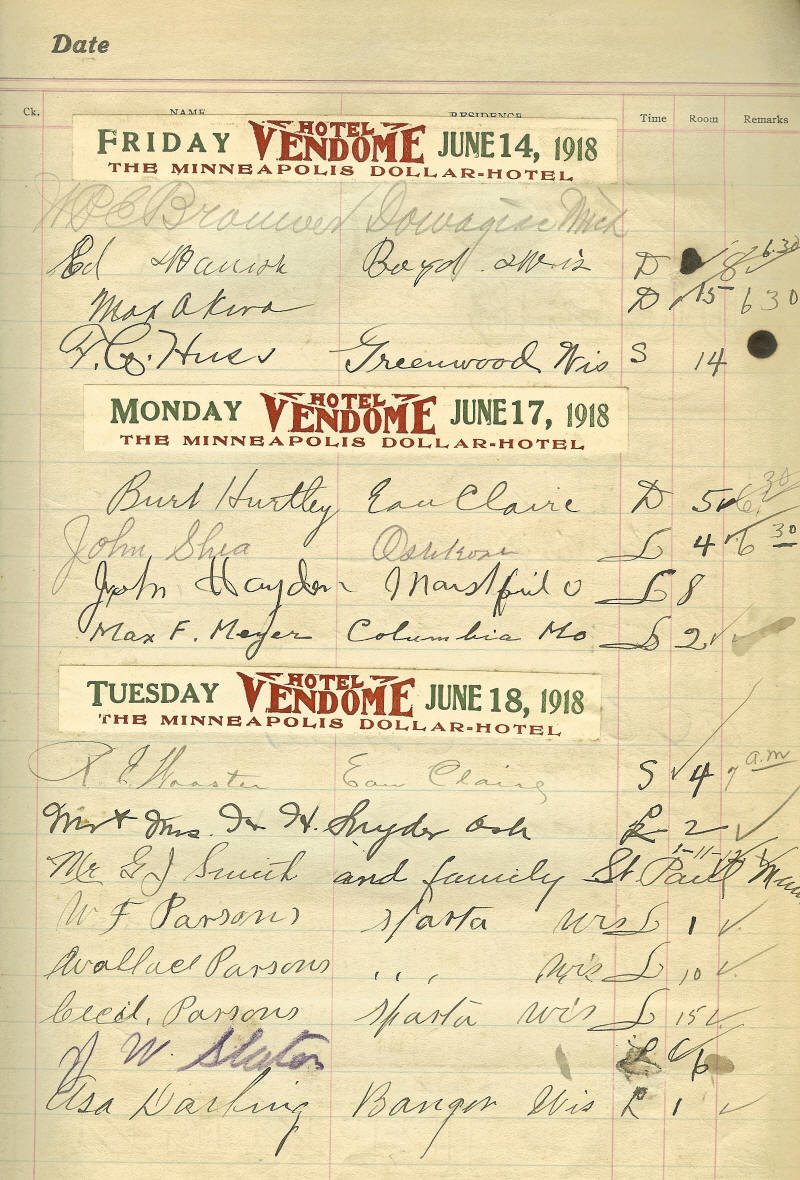 Date
Ck. NAME RESIDENCE Time Room Remarks
FRIDAY HOTEL VENDOME JUNE 14, 1918
THE MINNEAPOLIS DOLLAR-HOTEL
W P C Brouwer Dowagiac Mich
Ed Boyd Wis D 8 6.30
Max D 15 6 30
Huss Greenwood Wis S 14
MONDAY HOTEL VENDOME JUNE 17, 1918
THE MINNEAPOLIS DOLLAR-HOTEL
Burt Hurtley Eau Claire D 5 6.30
John Shea Oshkosh L 4 6 30
John Hayden L 8
Max F. Meyer Columbia Mo L 2
TUESDAY HOTEL VENDOME JUNE 18, 1918
THE MINNEAPOLIS DOLLAR-HOTEL
R E Wooster Eau Claire S 4 7 a.m
Mr + Mrs. H. Snyder Osh 2
Mr G J Smith and family St. Paul
W F Parsons Sparta Wis L 1
Wallace Parsons ,, , Wis L 10
Cecil, Parsons Sparta Wis L 15
J W. Slater L 6
Asa Darling Bangor Wis 1